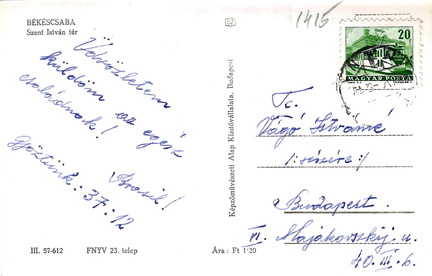 BÉKÉSCSABA
Szent István tér
Üdvözletem
küldöm az egész
családnak!
Győztünk: 37:12
III. 57-612
FNYV 23. telep
Képzőművészeti Alap Kiadóvállalata, Budapest
Ára: Ft 1·20
1415
20
MAGYAR POSTA
T.c.
Vágó Istvánné
/:részére:/
Budapest
VI. Majakovszkij u.
40. III. 6.